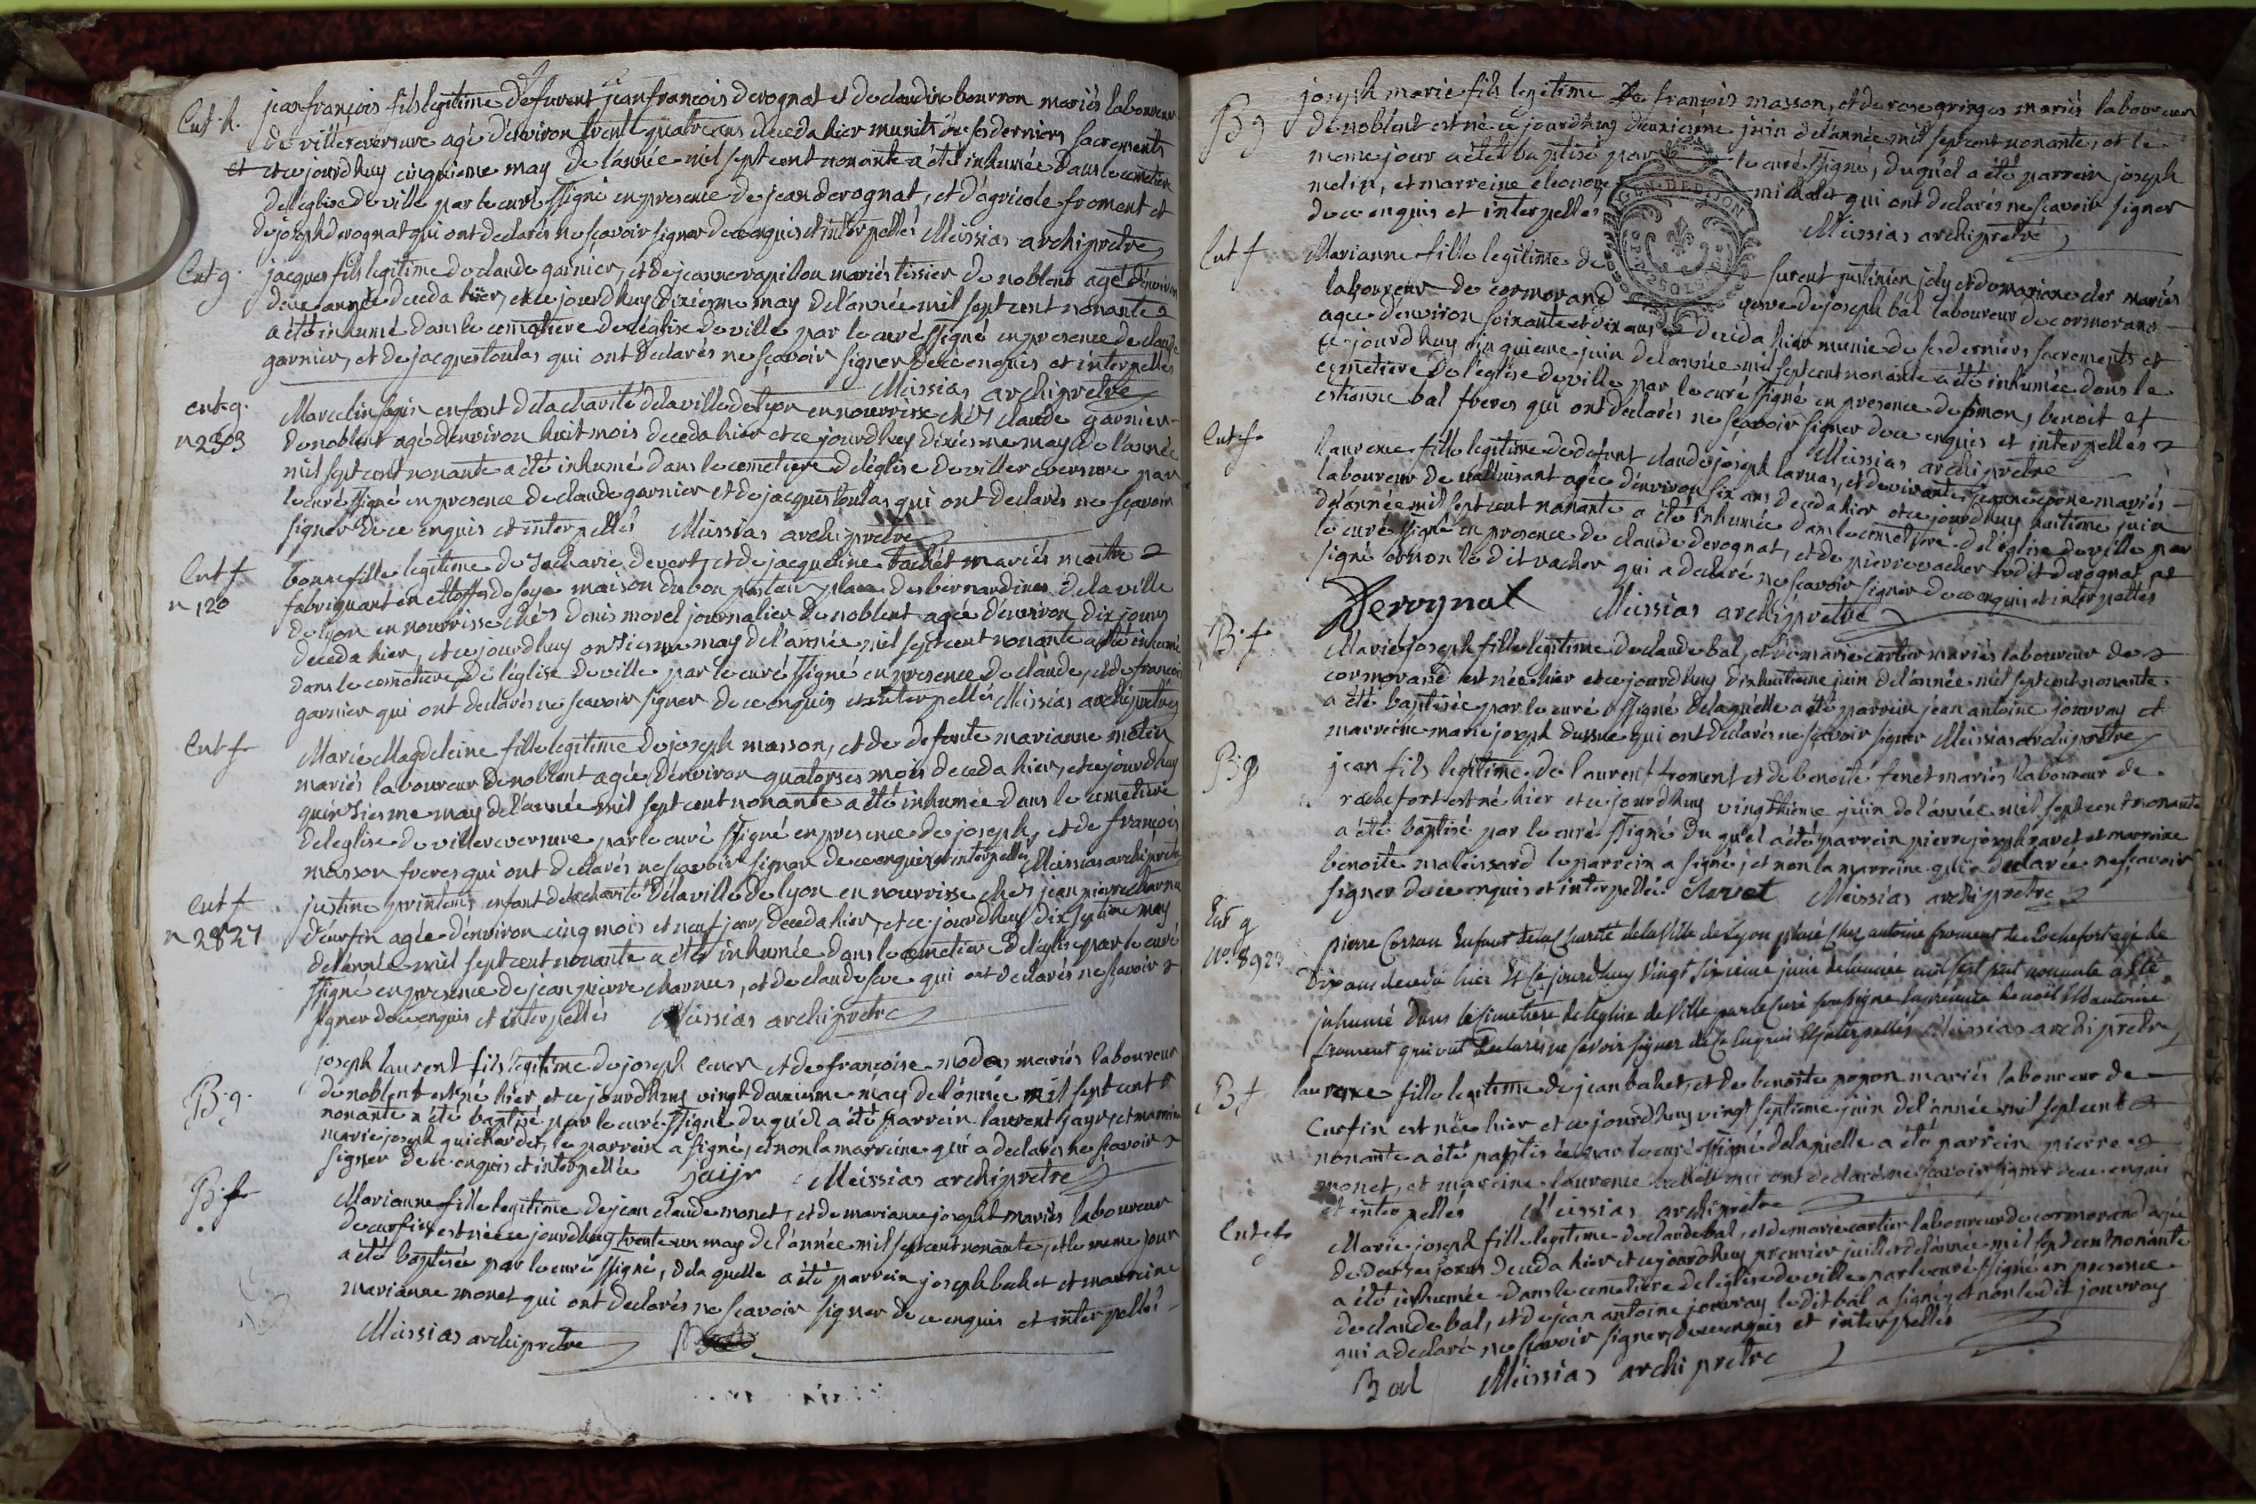 Ent. h. jean françois fils legitime de furent jean françois derognat et de claudine bourron mariés laboureur
de villereversure agé d'environ trente quatre ans deceda hier munits de ses derniers sacrements
et ce jourd'huy cinquieme may de l'année mil sept cent nonante a été inhumée dans le cemetiere
de l'église de ville par le curé ssigné en presence de jean derognat, et d'agricole froment et
de joseph derognat qui ont declarés ne sçavoir signer de ce enquis et interpellés Meissias archiprêtre
Ent g. jacques fils legitime de claude garnier, et de jeanne vapillon mariés tissier de noblens agé d'environ
deceda hier, et ce jourd'huy dixieme may de l'année mil sept cent nonante
a été inhumé dans le cemetiere de l'église de ville par le curé ssigné en presence de claude
garnier, et de jacques toulas qui ont declarés ne sçavoir signer de ce enquis et interpellés
Meissias archiprêtre
ent. g. Marcelin enfant de la charité de la ville de lyon en nourrisse chés claude garnier
n 2303 de noblens agé d'environ huit mois deceda hier et ce jourd'huy dixieme may de l'année
mil sept cent nonante a été inhumé dans le cemetiere de l'église de villereversure par
le curé ssigné en presence de claude garnier et de jacques toulas qui ont declarés ne sçavoir
signer de ce enquis et interpellés Meissias archiprêtre
Ent f. bonne fille legitime de Zacharie devert, et de jacqueline mariés maitre
n 120 fabriquant en etoffe de soye maison du bon pasteur place des bernardines de la ville
de lyon en nourrisse chés denis morel journalier de noblens agée d'environ dix jours
deceda hier, et ce jourd'huy onzieme may de l'année mil sept cent nonante a été inhumé
dans le cemetiere de l'église de ville par le curé ssigné en presence de claude, et de françois
garnier qui ont declarés ne scavoir signer de ce enquis et interpellés Meissias archiprêtre
Ent f. Marie Magdeleine fille legitime de joseph masson, et de defunte marianne molin
mariés laboureur de noblens agée d'environ quatorses mois deceda hier, et ce jourd'huy
quinzieme may de l'année mil sept cent nonante a été inhumée dans le cemetiere
de l'eglise de villereversure par le curé ssigné en presence de joseph, et de françois
masson freres qui ont declarés ne scavoir signer de ce enquis et interpellés Meissias archiprêtre
ent f. justine printems enfant de la charité de la ville de lyon en nourrisse chés jean pierre charnu
n 2827 de curfin agée d'environ cinq mois et neuf jours deceda hier, et ce jourd'huy dix septieme may
de l'année mil sept cent nonante a été inhumée dans le cemetiere de l'église par le curé
ssigné en presence de jean pierre charnus, et de claude qui ont declarés ne sçavoir
signer de ce enquis et interpellés Meissias archiprêtre
joseph laurent fils legitime de joseph et de françoise modas mariés laboureur
B. g. de noblens est né hier et ce jourd'huy vingt deuxieme may de l'année mil sept cent
nonante a été baptisé par le curé ssigné duquel a été parrein laurent sayr, et marreine
marie joseph guichardet, le parrein a signé, et non la marreine qui a declarée ne sçavoir
signer de ce enquis et interpellée sayr Meissias archiprêtre
B. f. Marianne fille legitime de jean claude monet, et de marianne josepht mariés laboureur
de curfin est née ce jourd'huy trente un may de l'année mil sept cent nonante, et le meme jour
a été baptisée par le curé ssigné, de la quelle a été parrein joseph bahet et marreine
marianne monet qui ont declarés ne sçavoir signer de ce enquis et interpellés
Meissias archiprêtre
B g joseph marie fils legitime de françois masson, et de rose gringos mariés laboureur
de noblens est né ce jourd'huy deuxieme juin de l'année mil sept cent nonante, et le
meme jour a été baptisé par le curé ssigné, duquel a été parrein joseph
melin, et marreine eleonore michalet qui ont declarés ne sçavoir signer
de ce enquis et interpellés Meissias archiprêtre
GEN. DE DIJON
Ent f Marianne fille legitime de furent justinien joly et de mariane mariés
laboureur de cormorand veuve de joseph bal laboureur de cormorand
agée d'environ soixante et dix ans deceda hier munie de ses derniers sacrements et
ce jourd'huy cinquieme juin de l'année mil sept cent nonante a été inhumée dans le
cemetiere de l'église de ville par le curé ssigné en presence de simon, benoit et
etienne bal freres qui ont declarés ne sçavoir signer de ce enquis et interpellés
Meissias archiprêtre
Ent. f. Laurence fille legitime de defunt claude joseph larnas, et de vivante jeanne mariés
laboureur de agée d'environ six ans deceda hier et ce jourd'huy huitieme juin
de l'année mil sept cent nonante a été inhumée dans le cemetiere de l'église de ville par
le curé ssigné en presence de claude derognat, et de pierre vacher ledit derognat
signé et non le dit vacher qui a declaré ne scavoir signer de ce enquis et interpellés
Derognat Meissias archiprêtre
B. f. Marie joseph fille legitime de claude bal, et de marie cartier mariés laboureur de
cormorand est née hier et ce jourd'huy dix huitieme juin de l'année mil sept cent nonante
a été baptisée par le curé ssigné de la quelle a été parrein jean antoine jouvray et
marreine marie joseph dussue qui ont declarés ne sçavoir signer Meissias archiprêtre
B. g jean fils legitime de laurent froment et de benoite fenet mariés laboureur de
rochefort est né hier et ce jourd'huy vingtieme juin de l'année mil sept cent nonante
a été baptisé par le curé ssigné du quel a été parrein pierre joseph ravet et marreine
benoite maleissard le parrein a signé, et non la marreine qui a declarée ne scavoir
signer de ce enquis et interpellée Ravet Meissias archiprêtre
Ent g pierre Corrau Enfant de la Charité de la Ville de Lyon placé chez antoine froment de Rochefort agé de
No. 8923 Dix ans deceda hier Et Ce jourd'huy Vingt sixieme juin de l'année mil sept cent nonante a été
inhumé Dans le Cimetiere de l'eglise de Ville par le Curé soussigné En presence de noël Et d'antoine
froment qui ont Declarés ne sçavoir signer de Ce Enquis Et interpellés Meissias archiprêtre
B f. laurence fille legitime de jean bahet, et de benoite pogon mariés laboureur de
Curfin est née hier et ce jourd'huy vingt septieme juin de l'année mil sept cent
nonante a été baptisée par le curé ssigné de la quelle a été parrein pierre
monet, et marreine laurence qui ont declarés ne sçavoir signer de ce enquis
et interpellés Meissias archiprêtre
Ent. f. Marie joseph fille legitime de claude bal, et de marie cartier laboureur de cormorand agée
de douze jours deceda hier et ce jourd'huy premier juillet de l'année mil sept cent nonante
a été inhumée dans le cemetiere de l'église de ville par le curé ssigné en presence
de claude bal, et de jean antoine jouvray le dit bal a signé, et non le dit jouvray
qui a declaré ne sçavoir signer de ce enquis et interpellés
Bal Meissias archiprêtre